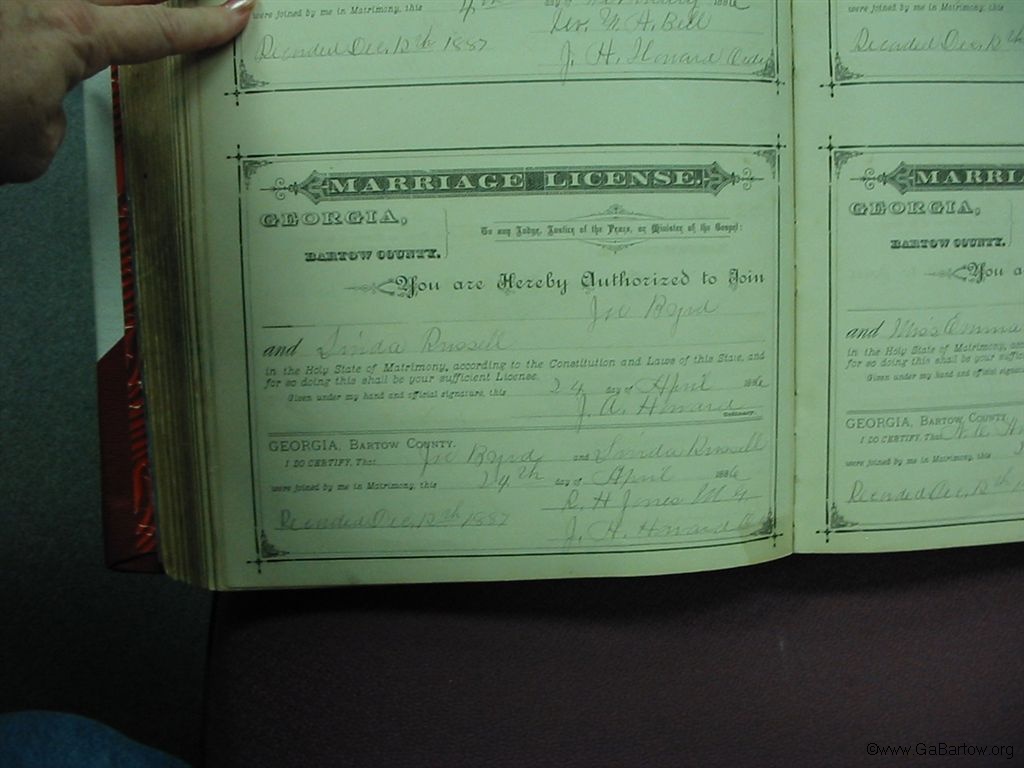 were joined by me in Matrimony, this 4th day of 1886
Rev. W. H. Bell
Recorded Dec. 15th 1887
J. H. Howard
MARRIAGE LICENSE.
GEORGIA,
BARTOW COUNTY.
To any Judge, Justice of the Peace, or Minister of the Gospel:
You are Hereby Authorized to Join
Joe Byrd
and Linda Russell
in the Holy State of Matrimony, according to the Constitution and Laws of this State, and
for so doing this shall be your sufficient License.
Given under my hand and official signature, this 24 day of April 1886
J. A. Howard
Ordinary.
GEORGIA, BARTOW COUNTY.
I DO CERTIFY, That Joe Byrd and Linda Russell
were joined by me in Matrimony, this 24th day of April 1886
R. H. Jones M G
Recorded Dec. 15th 1887
J. H. Howard
were joined by me in Matrimony, this
Recorded Dec. 15th
MARRI
GEORGIA,
BARTOW COUNTY.
You a
and Miss Emma
in the Holy State of Matrimony, according to the
for so doing this shall be your suffic
Given under my hand and official signatur
GEORGIA, BARTOW COUNTY.
I DO CERTIFY, That
were joined by me in Matrimony, this
Recorded Dec. 15th
©www.GaBartow.org